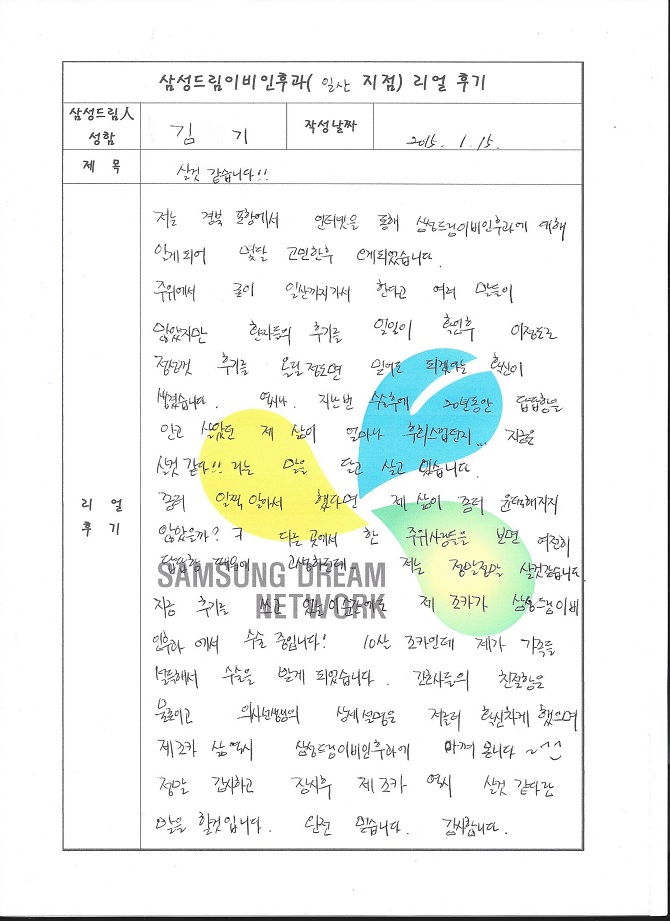 삼성드림이비인후과( 일산 지점) 리얼 후기
삼성드림人
성함
김 기
작성날짜
2015. 1. 15.
제 목
살것 같습니다!!
리 얼
후 기
저는 경북 포항에서 인터넷을 통해 삼성드림이비인후과에 대해
알게되어 몇달 고민한후 오게되었습니다.
주위에서 굳이 일산까지가서 한다고 여러 말들이
많았지만 환자들의 후기를 일일이 확인후 이정도로
정성껏 후기를 올릴정도면 믿어도 되겠다는 확신이
생겼습니다. 역시나 지난번 수술후에 20년동안 답답함을
안고 살았던 제 삶이 얼마나 후회스럽던지... 지금은
살것 같다!! 라는 말을 달고 살고 있습니다.
좀더 일찍 알아서 했다면 제 삶이 좀더 윤택해지지
않았을까? ㅋ 다른 곳에서 한 주위사람들을 보면 여전히
답답함 때문에 고생하던데.. 저는 정말정말 살것같습니다.
지금 후기를 쓰고 있는 이순간에도 제 조카가 삼성드림이비
인후과 에서 수술 중입니다! 10살 조카인데 제가 가족들
설득해서 수술을 받게 되었습니다. 간호사들의 친절함은
물론이고 의사선생님의 상세설명은 저를더 확신차게 했으며
제조카 삶 역시 삼성드림이비인후과에 맡겨 봅니다 ~^^
정말 감사하고 잠시후 제 조카 역시 살것 같다란
말을 할것입니다. 완전 믿습니다. 감사합니다.
SAMSUNG DREAM
NETWORK